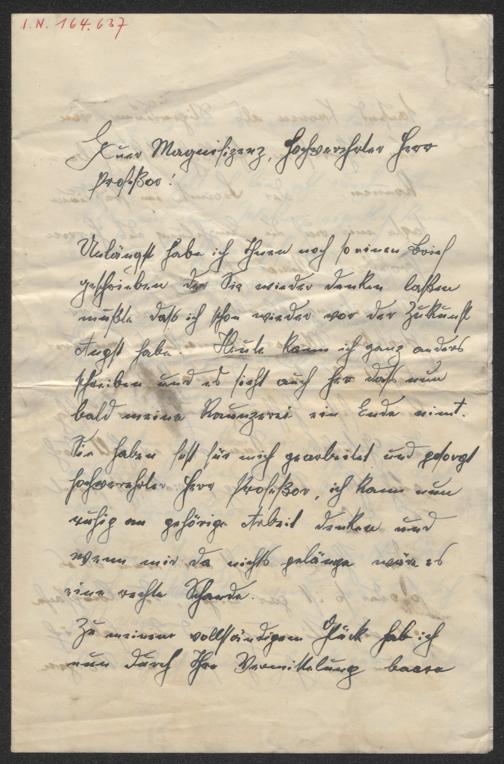 I.N. 164.637
Euer Magnifizenz, Hochverehrter Herr
Profeßor!
Unlängst habe ich Ihnen noch so einen Brief
geschrieben der Sie wieder denken laßen
mußte daß ich schon wieder vor der Zukunft
Angst habe. Heute kann ich ganz anders
schreiben und es sieht auch her daß nun
bald meine Raunzerei ein Ende nimt.
Sie haben fest für mich gearbeitet und gesorgt
hochverehrter Herr Profeßor, ich kann nun
ruhig an gehörige Arbeit denken und
wenn mir da nichts gelänge wäre es
eine rechte Schande.
Zu meinem vollständigem Glück hab ich
nun durch Ihre Vermittelung baare